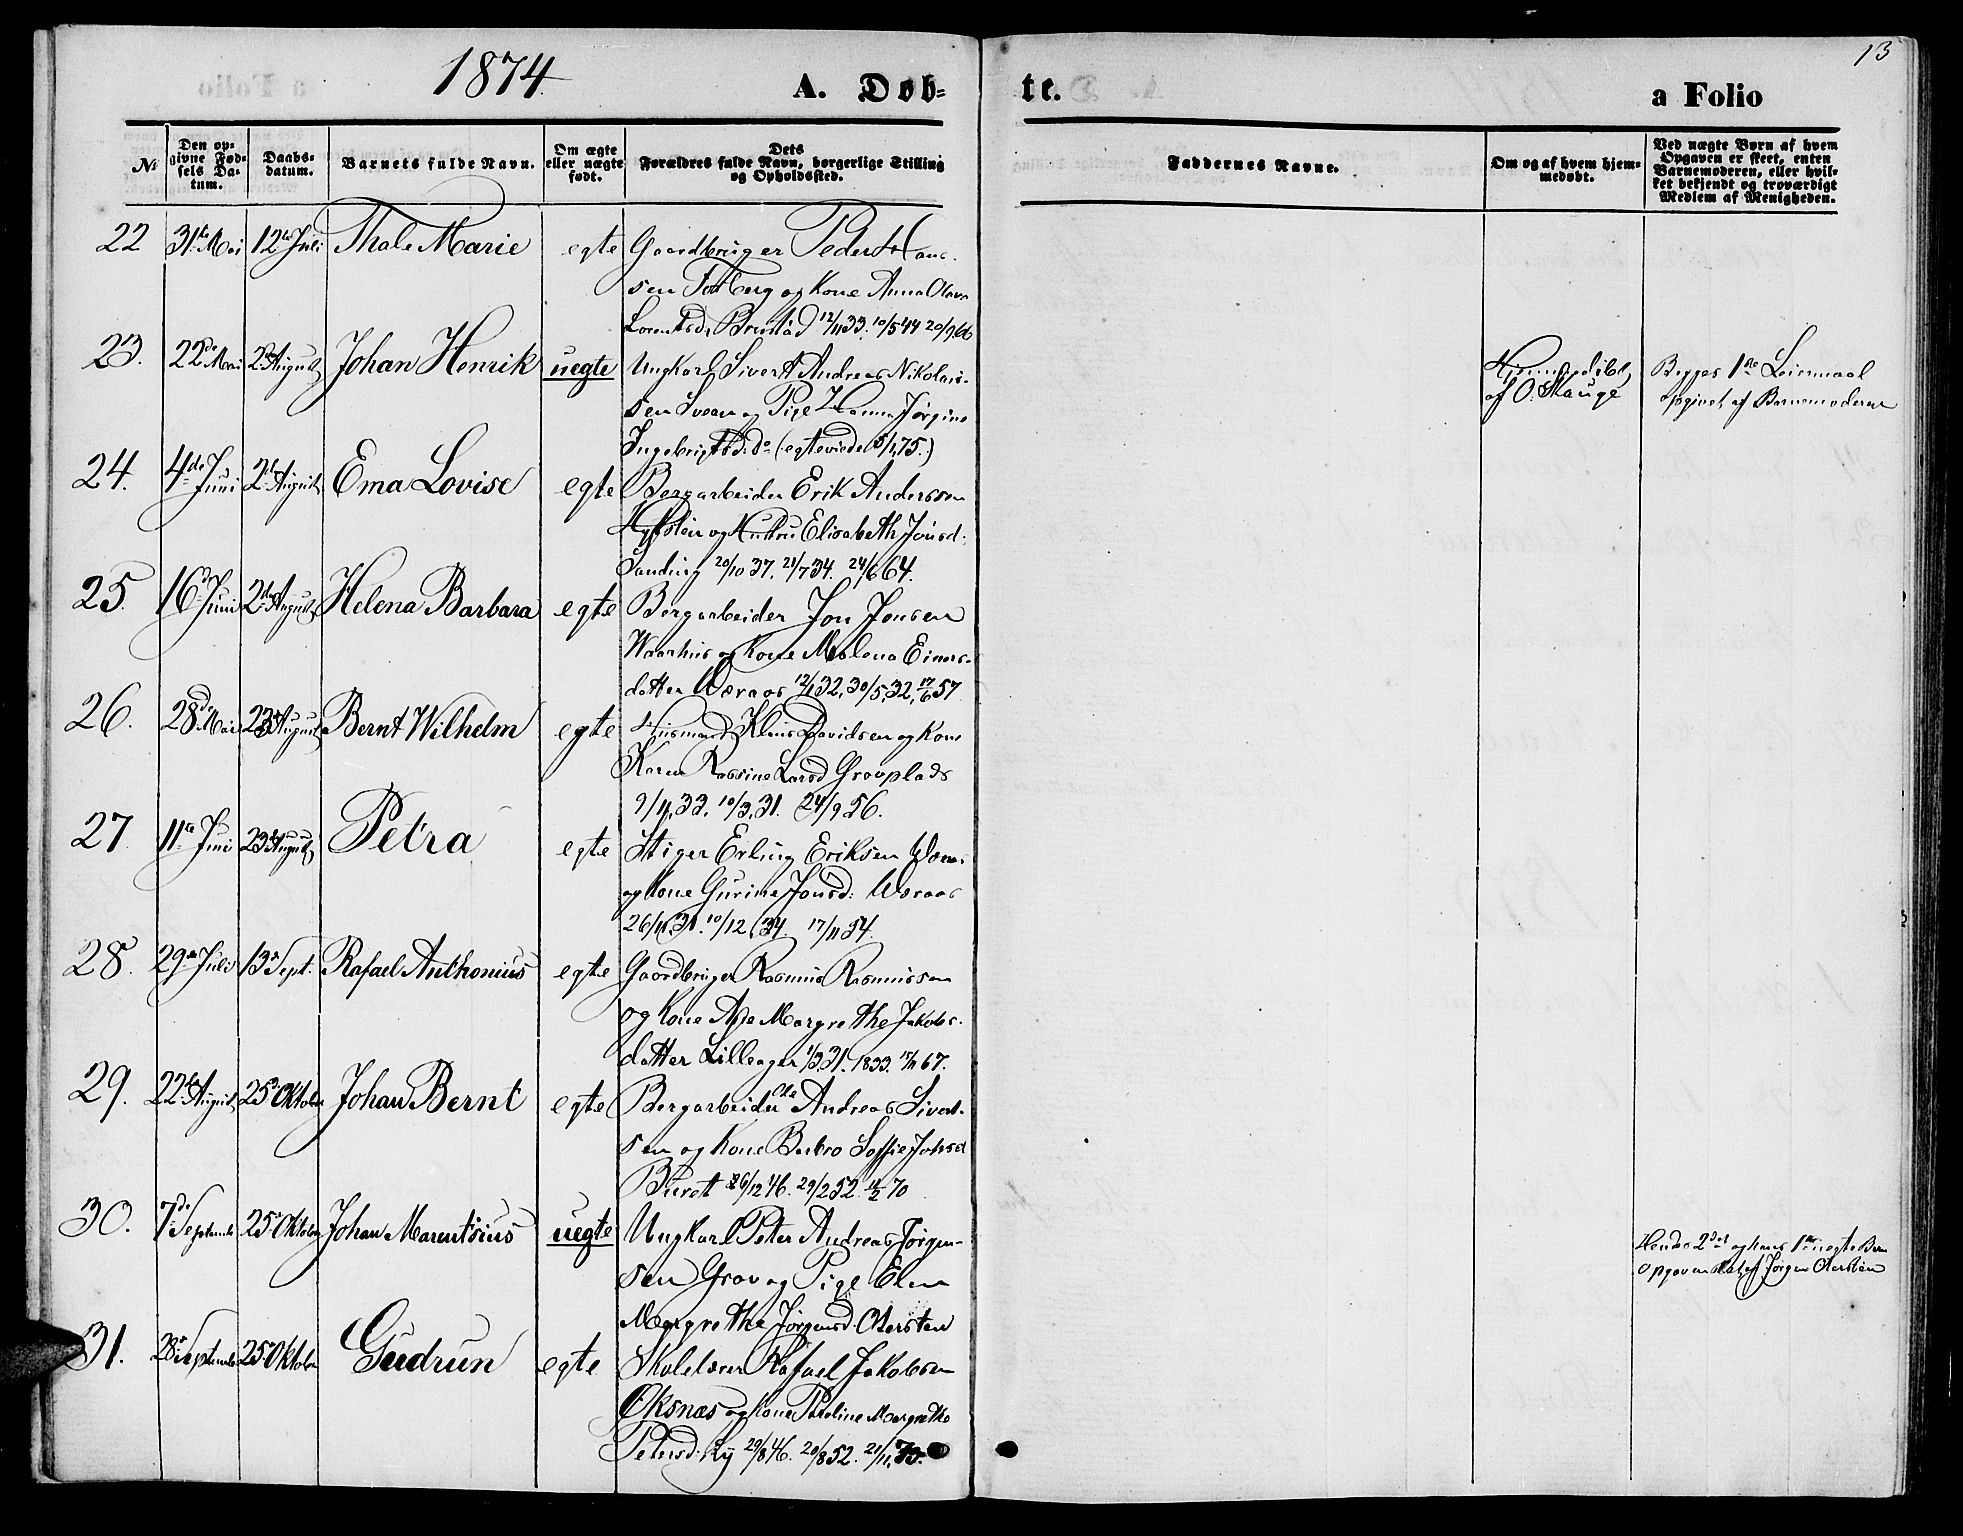 1874.
A. Døb-
te.
a Folio
13
№
Den op-
givne Fød-
sels Da-
tum.
Daabs-
datum.
Barnets fulde Navn.
Om ægte
eller uægte
født.
Dets
Forældres fulde Navn, borgerlige Stilling
og Opholdssted.
Faddernes Navne.
Om og af hvem hjem-
medøbt.
Ved uægte Børn af hvem
Opgaven er skeet, enten
Barnemoderen, eller hvil-
ket bekjendt og troværdigt
Medlem af Menigheden.
22 31te Mai 12te Juli Thale Marie egte Gaardbruger Peder Han-
sen og Kone Anna Olava
12/11 33. 10/5 44 20/9 66
23. 22de Mai 2den August Johan Henrik uegte Ungkarl Sivert Andreas Nikolai-
sen Svean og Pige Hanna Jørgine
Ingebrigtsd: do (egteviede 5/1 75.)
Hjemmedøbt
af O. Hauge
Begges 1ste Leiermaal
opgivet af Barnemoderen
24. 4de Juni 2den August Ema Lovise egte Bergarbeider Erik Anderssen
og Hustru Elisabeth Jonsd:
20/10 37. 21/7 34. 24/6 64.
25. 16de Juni 2den August Helena Barbara egte Bergarbeider Jon Jonsen
og Kone Malena Einers-
datter Weraas 12/1 32, 30/5 32, 17/6 57
26. 28de Mai 23de August Bernt Wilhelm egte Husmand Klaus Davidsen og Kone
Karen Rassine Larsd Grovplads
9/11 33. 10/3 31. 24/9 56.
27. 11te Juni 23de August Petra egte Stiger Erling Eriksen
og Kone Gurine Jonsd: Weraas
26/11 31. 10/12 34. 17/11 54.
28. 29de Juli 13de Sept. Rafael Anthonius egte Gaardbruger Rasmus Rasmussen
og Kone Margrethe Jakobs-
datter Lilleager 1/3 31. 1833. 15/11 67.
29. 22de August 25de Oktober Johan Bernt egte Bergarbeider Ole Andreas Sivert-
sen og Kone Berbro Soffie Johsd
Buret 26/12 46. 29/2 52. 11/2 70
30. 7de September 25de Oktober Johan Marentsius uegte Ungkarl Peter Andreas Jørgen-
sen Grov og Pige Elen
Margrethe Jørgensd. Otersten
Hendes 2det og hans 1ste uegte Barn
Opgaven skeet af Jørgen Otersten
31. 28de September 25de Oktober Gudrun egte Skolelærer Rafael Jakobsen
Øksnæs og Kone Paroline Margrethe
Petersd: Ry 29/8 46. 20/8 52. 21/11 73.